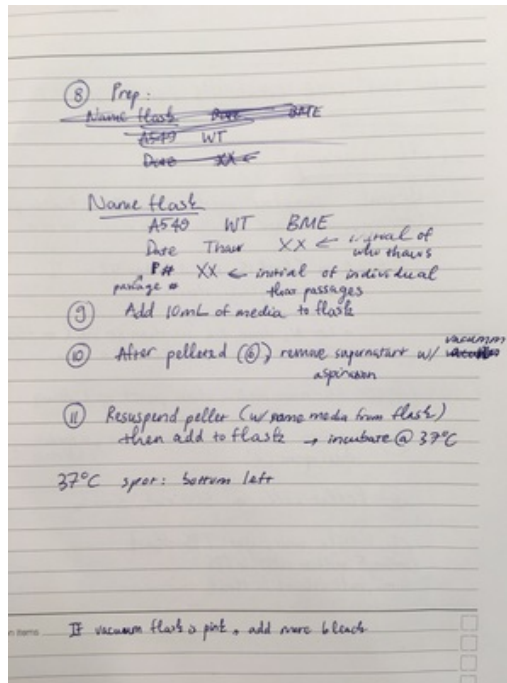 ⑧ Prep:
Name flask Date BME
A549 WT
Date XX ←
Name flask
A549 WT BME
Date Thaw XX ← initial of
who thaws
P# XX ← initial of individual
passage # that passages
⑨ Add 10mL of media to flask
⑩ After pelleted (⑥), remove supernatant w/ vacuum
aspiration
⑪ Resuspend pellet (w/ some media from flask)
then add to flask → incubate @ 37°C
37°C spot: bottom left
n Items If vacuum flask is pink, add more bleach